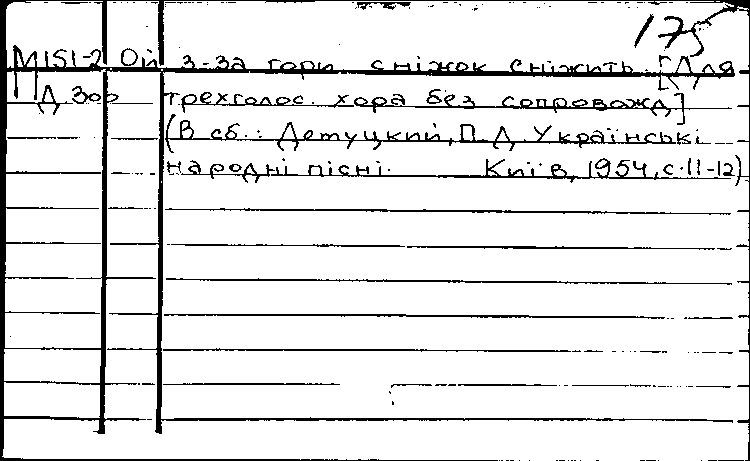 175
М151-2 Ой з-за гори сніжок сніжить. [Для
Д 300 трехголос. хора без сопровожд]
(В сб.: Демуцкий, П.Д. Українські
народні пісні. Київ, 1954, с.11-12)